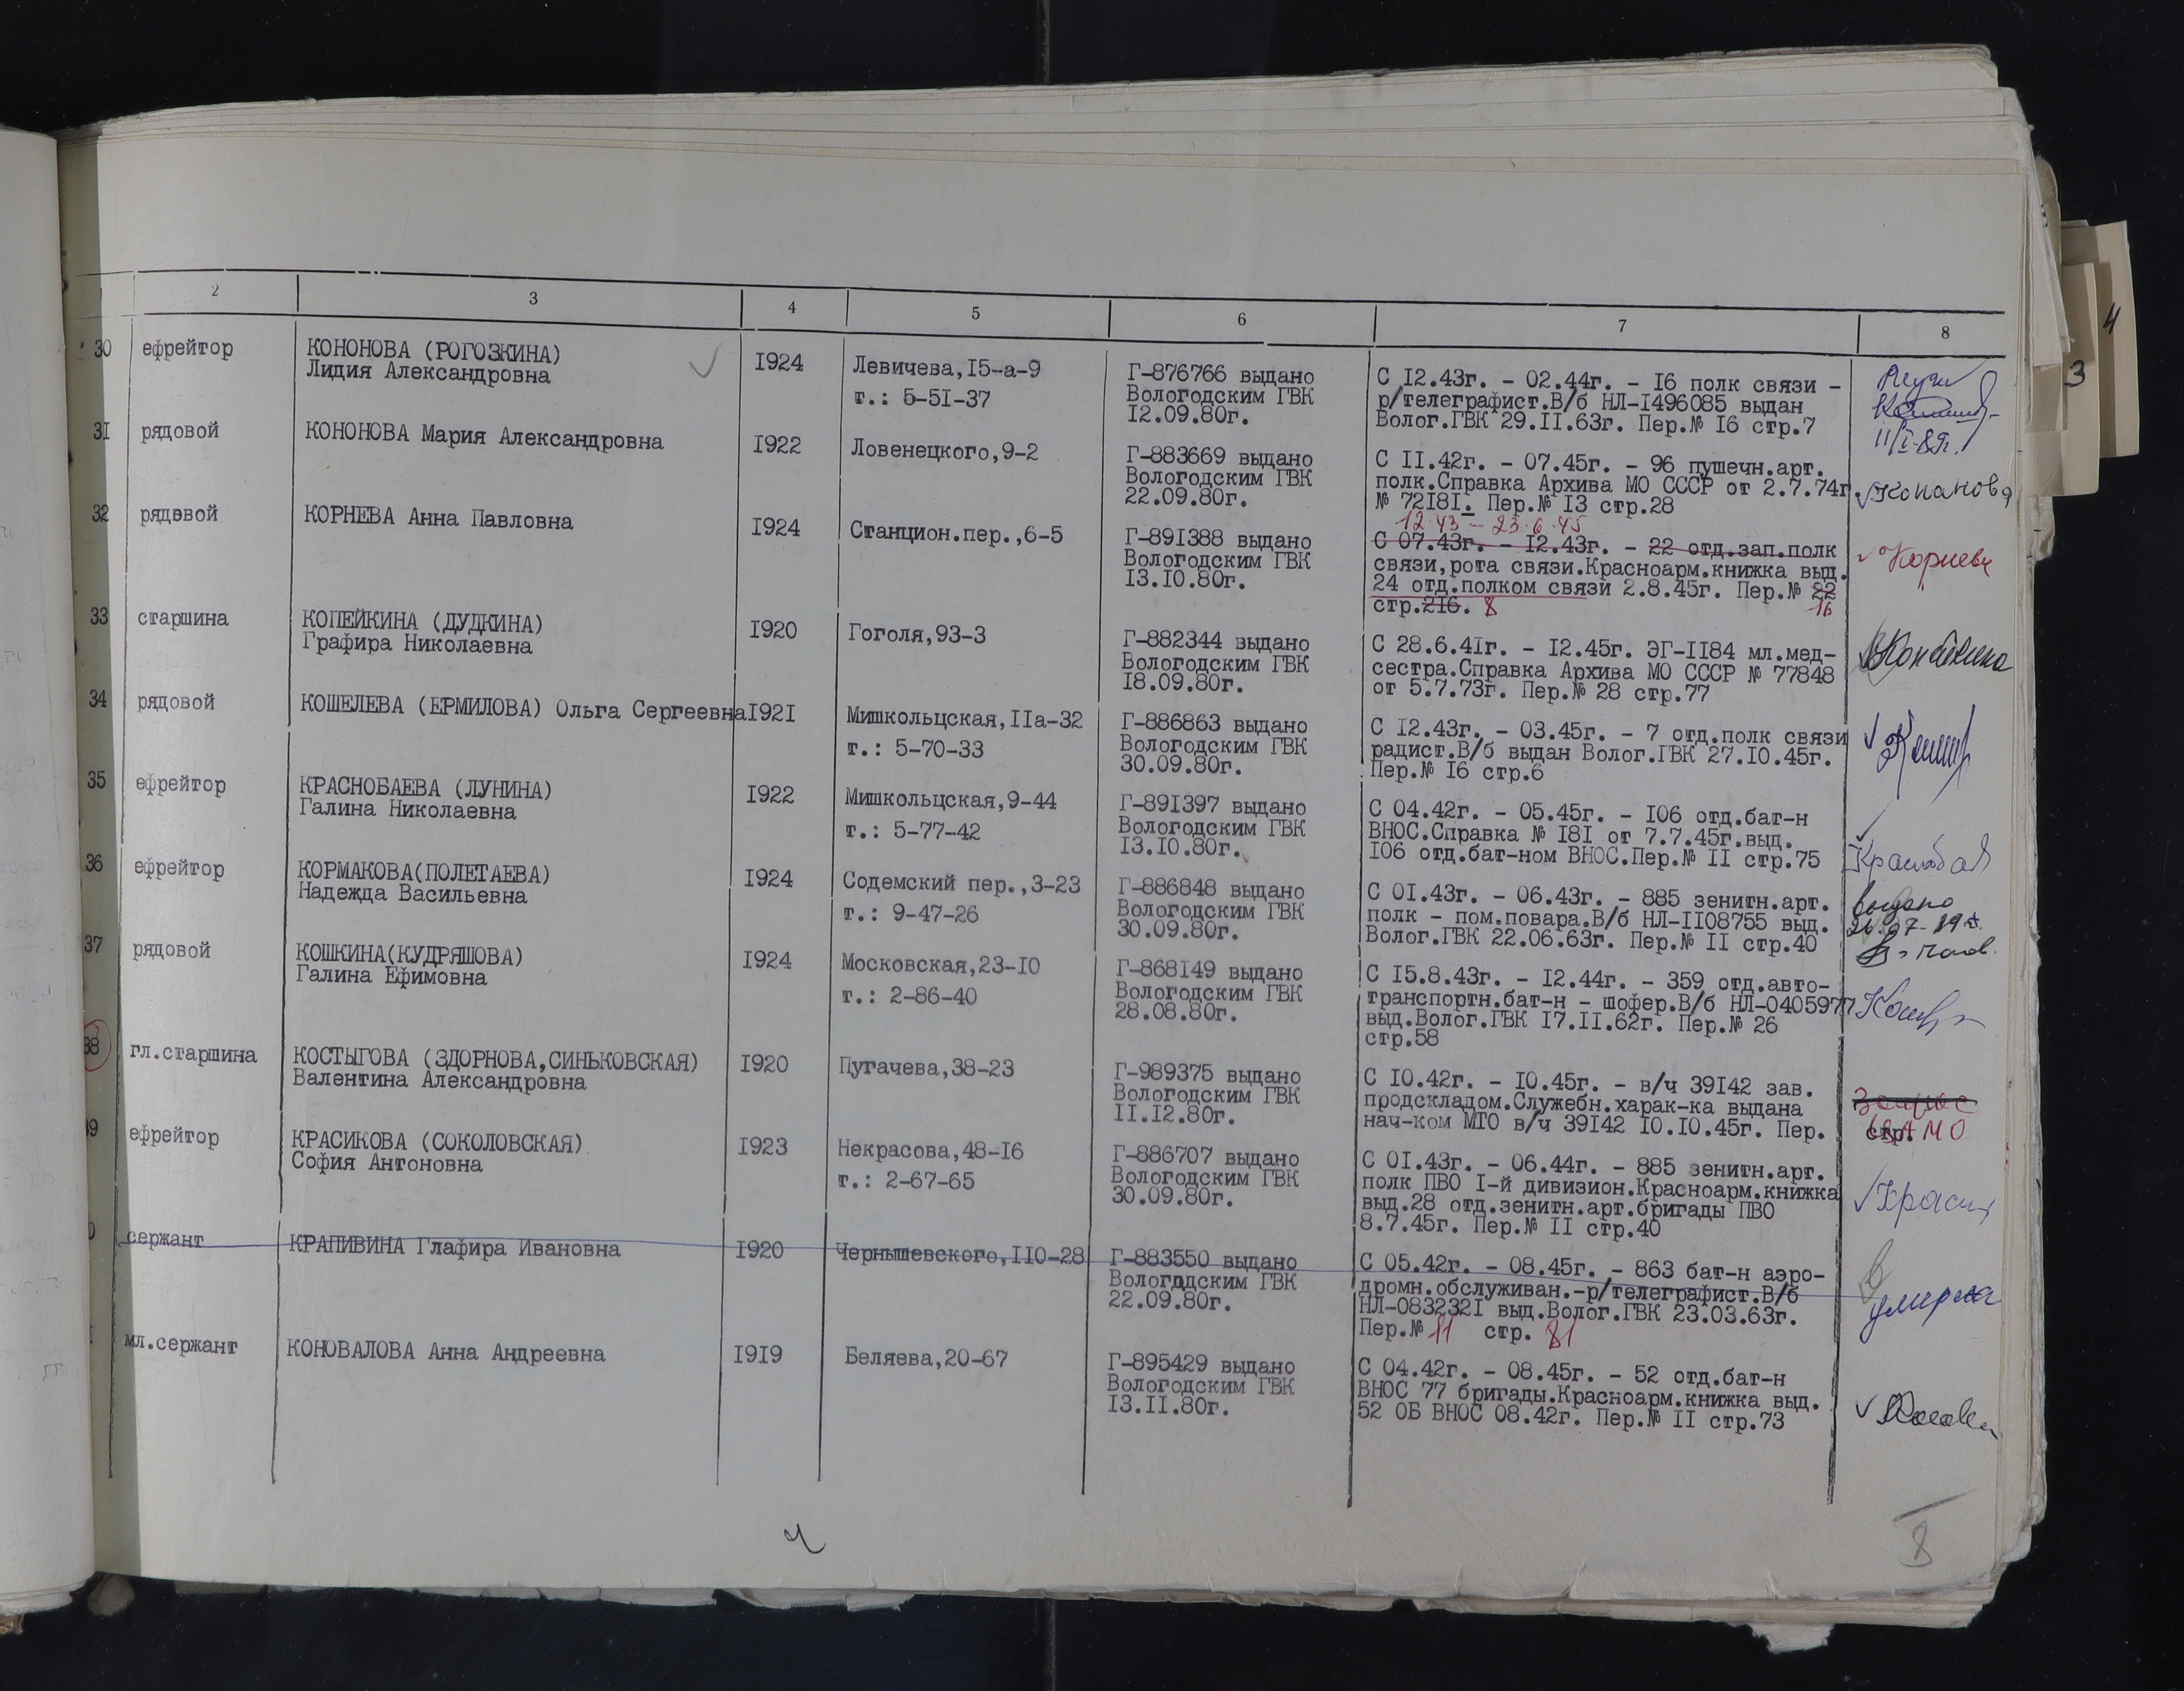 2 3 4 5 6 7 8
30 ефрейтор КОНОНОВА (РОГОЗКИНА) 1924 Левичева,15-а-9 Г-876766 выдано С 12.43г. - 02.44г. - 16 полк связи -
Лидия Александровна т.: 5-51-37 Вологодским ГВК р/телеграфист.В/б НЛ-1496085 выдан
12.09.80г. Волог.ГВК 29.11.63г. Пер.№ 16 стр.7
31 рядовой КОНОНОВА Мария Александровна 1922 Ловенецкого,9-2 Г-883669 выдано С 11.42г. - 07.45г. - 96 пушечн.арт.
Вологодским ГВК полк.Справка Архива МО СССР от 2.7.74г. Кононова
22.09.80г. № 72181. Пер.№ 13 стр.28
12.43 - 23.6.45
32 рядовой КОРНЕВА Анна Павловна 1924 Станцион.пер.,6-5 Г-891388 выдано С 07.43г. - 12.43г. - 22 отд.зап.полк Корнева
Вологодским ГВК связи,рота связи.Красноарм.книжка выд.
13.10.80г. 24 отд.полком связи 2.8.45г. Пер.№ 22
стр.216. 8 16
33 старшина КОПЕЙКИНА (ДУДКИНА) 1920 Гоголя,93-3 Г-882344 выдано С 28.6.41г. - 12.45г. ЭГ-1184 мл.мед-
Графира Николаевна Вологодским ГВК сестра.Справка Архива МО СССР № 77848
18.09.80г. от 5.7.73г. Пер.№ 28 стр.77
34 рядовой КОШЕЛЕВА (ЕРМИЛОВА) Ольга Сергеевна 1921 Мишкольцская,11а-32 Г-886863 выдано С 12.43г. - 03.45г. - 7 отд.полк связи
т.: 5-70-33 Вологодским ГВК радист.В/б выдан Волог.ГВК 27.10.45г.
30.09.80г. Пер.№ 16 стр.6
35 ефрейтор КРАСНОБАЕВА (ЛУНИНА) 1922 Мишкольцская,9-44 Г-891397 выдано С 04.42г. - 05.45г. - 106 отд.бат-н
Галина Николаевна т.: 5-77-42 Вологодским ГВК ВНОС.Справка № 181 от 7.7.45г.выд.
13.10.80г. 106 отд.бат-ном ВНОС.Пер.№ 11 стр.75
36 ефрейтор КОРМАКОВА(ПОЛЕТАЕВА) 1924 Содемский пер.,3-23 Г-886848 выдано С 01.43г. - 06.43г. - 885 зенитн.арт. выдано
Надежда Васильевна т.: 9-47-26 Вологодским ГВК полк - пом.повара.В/б НЛ-1108755 выд.
30.09.80г. Волог.ГВК 22.06.63г. Пер.№ 11 стр.40
37 рядовой КОШКИНА(КУДРЯШОВА) 1924 Московская,23-10 Г-868149 выдано С 15.8.43г. - 12.44г. - 359 отд.авто-
Галина Ефимовна т.: 2-86-40 Вологодским ГВК транспортн.бат-н - шофер.В/б НЛ-0405977
28.08.80г. выд.Волог.ГВК 17.11.62г. Пер.№ 26
стр.58
38 гл.старшина КОСТЫГОВА (ЗДОРНОВА,СИНЬКОВСКАЯ) 1920 Пугачева,38-23 Г-989375 выдано С 10.42г. - 10.45г. - в/ч 39142 зав.
Валентина Александровна Вологодским ГВК продскладом.Служебн.харак-ка выдана
11.12.80г. нач-ком МТО в/ч 39142 10.10.45г. Пер. стр.
9 ефрейтор КРАСИКОВА (СОКОЛОВСКАЯ) 1923 Некрасова,48-16 Г-886707 выдано С 01.43г. - 06.44г. - 885 зенитн.арт.
София Антоновна т.: 2-67-65 Вологодским ГВК полк ПВО 1-й дивизион.Красноарм.книжка
30.09.80г. выд.28 отд.зенитн.арт.бригады ПВО
8.7.45г. Пер.№ 11 стр.40
0 сержант КРАПИВИНА Глафира Ивановна 1920 Чернышевского,110-28 Г-883550 выдано С 05.42г. - 08.45г. - 863 бат-н аэро-
Вологддским ГВК дромн.обслуживан.-р/телеграфист.В/б умерла
22.09.80г. НЛ-0832321 выд.Волог.ГВК 23.03.63г.
Пер.№ 11 стр. 81
мл.сержант КОНОВАЛОВА Анна Андреевна 1919 Беляева,20-67 Г-895429 выдано С 04.42г. - 08.45г. - 52 отд.бат-н
Вологодским ГВК ВНОС 77 бригады.Красноарм.книжка выд.
13.11.80г. 52 ОБ ВНОС 08.42г. Пер.№ 11 стр.73
8
3
4